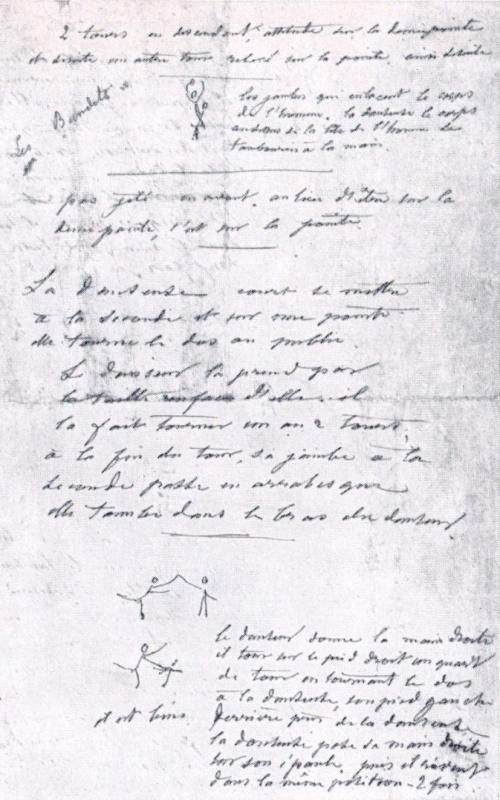 2 tours en descendant, attitude sur la demi pointe
et ensuite un autre tour sur la pointe, ainsi de suite
les jambes qui enlacent le corps
de l'homme. la danseuse le corps
au dessus de la tête de l'homme le
tambourin à la main.
pas jeté en avant, au lieu d'être sur la
demi pointe, c'est sur la pointe.
La danseuse court se mettre
à la seconde et sur une pointe
elle tourne le dos au public.
Le danseur la prend par
la taille en face d'elle, il
la fait tourner un ou 2 tours,
à la fin du tour, sa jambe à la
seconde passe en arabesque
elle tombe dans le bras du danseur
le danseur donne la main droite
et tour sur le pied droit un quart
de tour en tournant le dos
à la danseuse, son pied gauche
derrière près de la danseuse,
la danseuse pose sa main droite
sur son épaule, puis
dans la même position - 2 fois